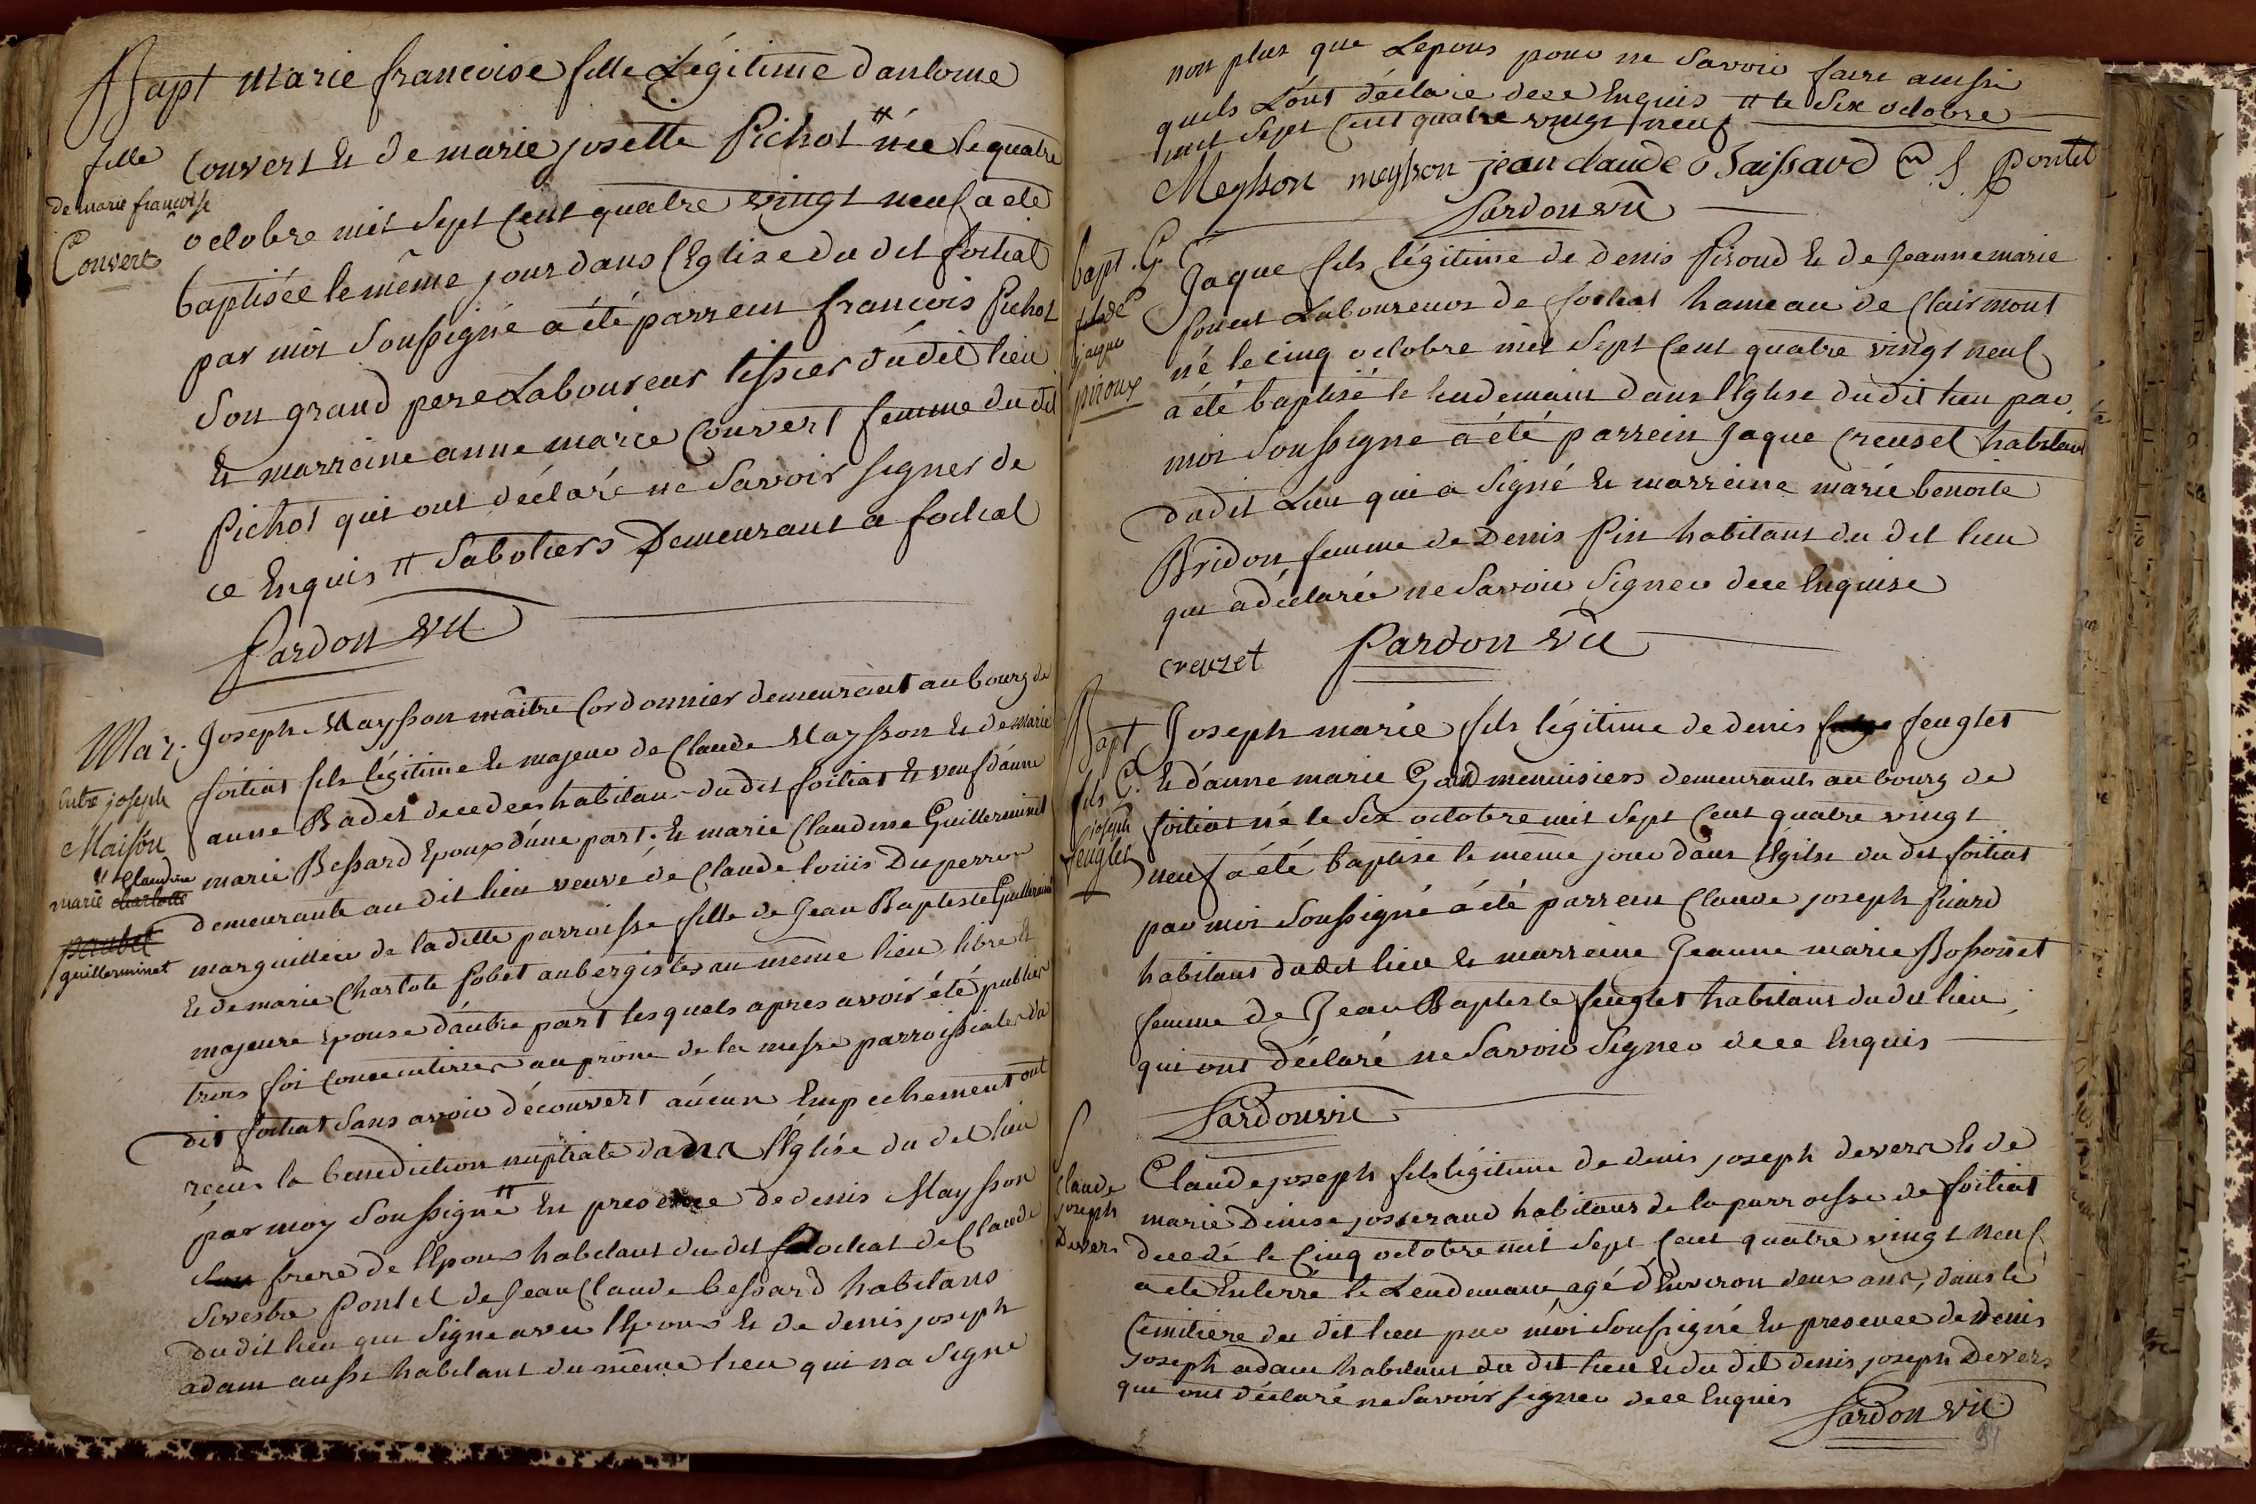 Bapt Marie francoise fille Légitime d'antoine
fille
de marie francoise
Convert
Convert & de marie josette Pichot # née le quatre
octobre mil sept cent quatre vingt neuf a eté
baptisée le même jour dans l'Eglise du dit foitiat
par moi soussigné a été parrein francois Pichot
son grand pere Laboureur tissier du dit lieu
& marreine anne marie Convert femme du dit
Pichot qui ont déclaré ne savoir signer de
ce Enquis # Sabotiers Demeurant a foitiat
Pardon vic
Mar.
entre joseph
Maison
& Claudine
marie charlotte
guillerminet
Joseph Maysson maître Cordonnier demeurant au bourg de
foitiat fils légitime & majeur de Claude Maysson & de marie
anne Badet decedees habitans du dit foitiat & veuf d'anne
marie Bessard Epoux d'une part. & marie Claudine Guillerminet
demeurante au dit lieu veuve de Claude louis Duperron
marguillier de la ditte parroisse fille de Jean Baptiste Guillerminet
& de marie Charlote Pobet aubergistes au même lieu libre &
majeure Epouse d'autre part lesquels apres avoir été publiés
trois foi consecutives au prône de la messe parroissiale du
dit foitiat sans avoir découvert aucun Empechement ont
reçus la benediction nuptiale dans l'Eglise du dit lieu
par moy soussigné # En presence de denis Maysson
frere de l'Epoux habitant du dit foitiat de Claude
Sivestre Pontet de Jean Claude bessard habitans
du dit lieu qui signe avec l'Epoux & de denis joseph
adam aussi habitant du même lieu qui n'a signé
non plus que L'epoux pour ne savoir faire aussi
quils L'ont déclaré de ce Enquis # le six octobre
mil sept cent quatre vingt neuf
Meysson meysson jean claude Baissard C. S. Pontet
Pardon vic
bapt. G.
fils de
jaque
piroux
Jaque fils légitime de denis Piroud & de Jeanne marie
Laboureurs de foitiat hameau de Clairmont
né le cinq octobre mil sept cent quatre vingt neuf
a été baptisé le lendemain dans l'Eglise du dit lieu par
moi soussigné a été parrein Jaque Creuset habitant
dudit Lieu qui a signé & marreine marie benoite
Bridon femme de Denis Pin habitant du dit lieu
qui a déclarée ne savoir signer de ce Enquise
creuzet Pardon vic
Bapt
fils C.
joseph
feuglet
Joseph marie fils légitime de denis feuglet
& d'anne marie menuisiers demeurants au bourg de
foitiat né le six octobre mil sept cent quatre vingt
neuf a été baptisé le même jour dans l'Eglise du dit foitiat
par moi soussigné a été parrein Claude joseph fuard
habitant dudit lieu & marreine Jeanne marie Bossonnet
femme de Jean Baptiste feuglet habitant du dit lieu
qui ont déclaré ne savoir signer de ce Enquis
Pardon vic
S
Claude
joseph
Devers
Claude joseph fils légitime de denis joseph devers & de
marie Denise josserand habitans de la parroisse de foitiat
decedé le cinq octobre mil sept cent quatre vingt neuf
a eté Enterré le Lendemain agé d'Environ deux ans, dans le
Cimitiere du dit lieu par moi soussigné En presence de denis
joseph adam habitant du dit lieu & du dit denis joseph Devers
qui ont déclaré ne savoir signer de ce Enquis
Pardon vic
91